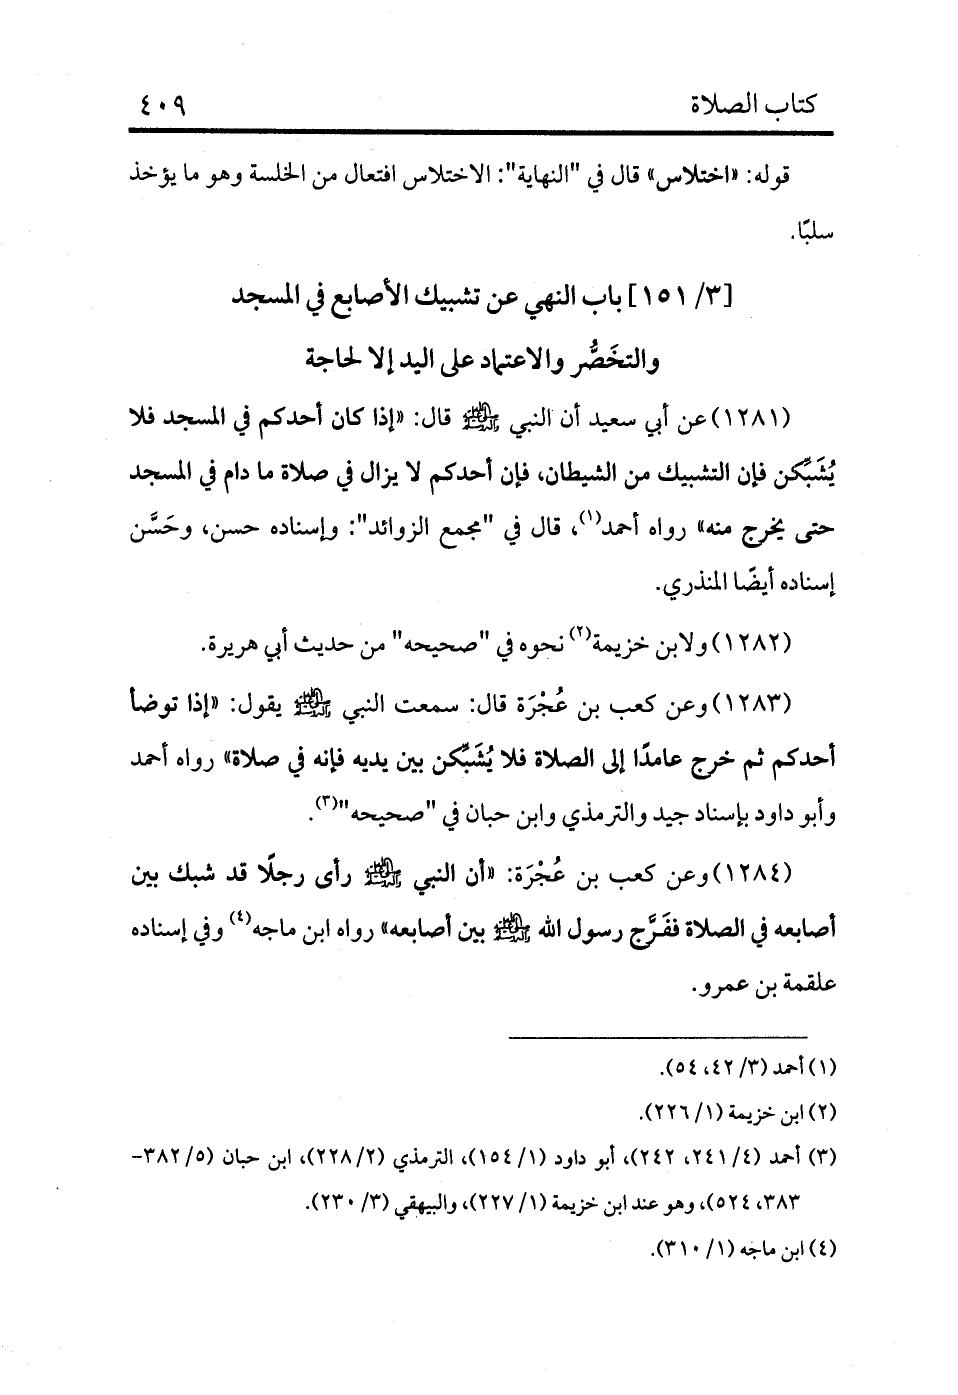 كتاب الصلاة ٤٠٩
قوله: «اختلاس» قال في "النهاية": الاختلاس افتعال من الخلسة وهو ما يؤخذ
سلبًا.
[٣/ ١٥١] باب النهي عن تشبيك الأصابع في المسجد
والتخَصُّر والاعتماد على اليد إلا لحاجة
(١٢٨١) عن أبي سعيد أن النبي ﷺ قال: «إذا كان أحدكم في المسجد فلا
يُشَبِّكن فإن التشبيك من الشيطان، فإن أحدكم لا يزال في صلاة ما دام في المسجد
حتى يخرج منه» رواه أحمد(١)، قال في "مجمع الزوائد": وإسناده حسن، وحَسَّن
إسناده أيضًا المنذري.
(١٢٨٢) ولابن خزيمة(٢) نحوه في "صحيحه" من حديث أبي هريرة.
(١٢٨٣) وعن كعب بن عُجْرَة قال: سمعت النبي ﷺ يقول: «إذا توضأ
أحدكم ثم خرج عامدًا إلى الصلاة فلا يُشَبِّكن بين يديه فإنه في صلاة» رواه أحمد
وأبو داود بإسناد جيد والترمذي وابن حبان في "صحيحه"(٣).
(١٢٨٤) وعن كعب بن عُجْرَة: «أن النبي ﷺ رأى رجلًا قد شبك بين
أصابعه في الصلاة ففَرَّج رسول الله ﷺ بين أصابعه» رواه ابن ماجه(٤) وفي إسناده
علقمة بن عمرو.
(١) أحمد (٣/ ٤٢، ٥٤).
(٢) ابن خزيمة (١/ ٢٢٦).
(٣) أحمد (٤/ ٢٤١، ٢٤٢)، أبو داود (١/ ١٥٤)، الترمذي (٢/ ٢٢٨)، ابن حبان (٥/ ٣٨٢-
٣٨٣، ٥٢٤)، وهو عند ابن خزيمة (١/ ٢٢٧)، والبيهقي (٣/ ٢٣٠).
(٤) ابن ماجه (١/ ٣١٠).